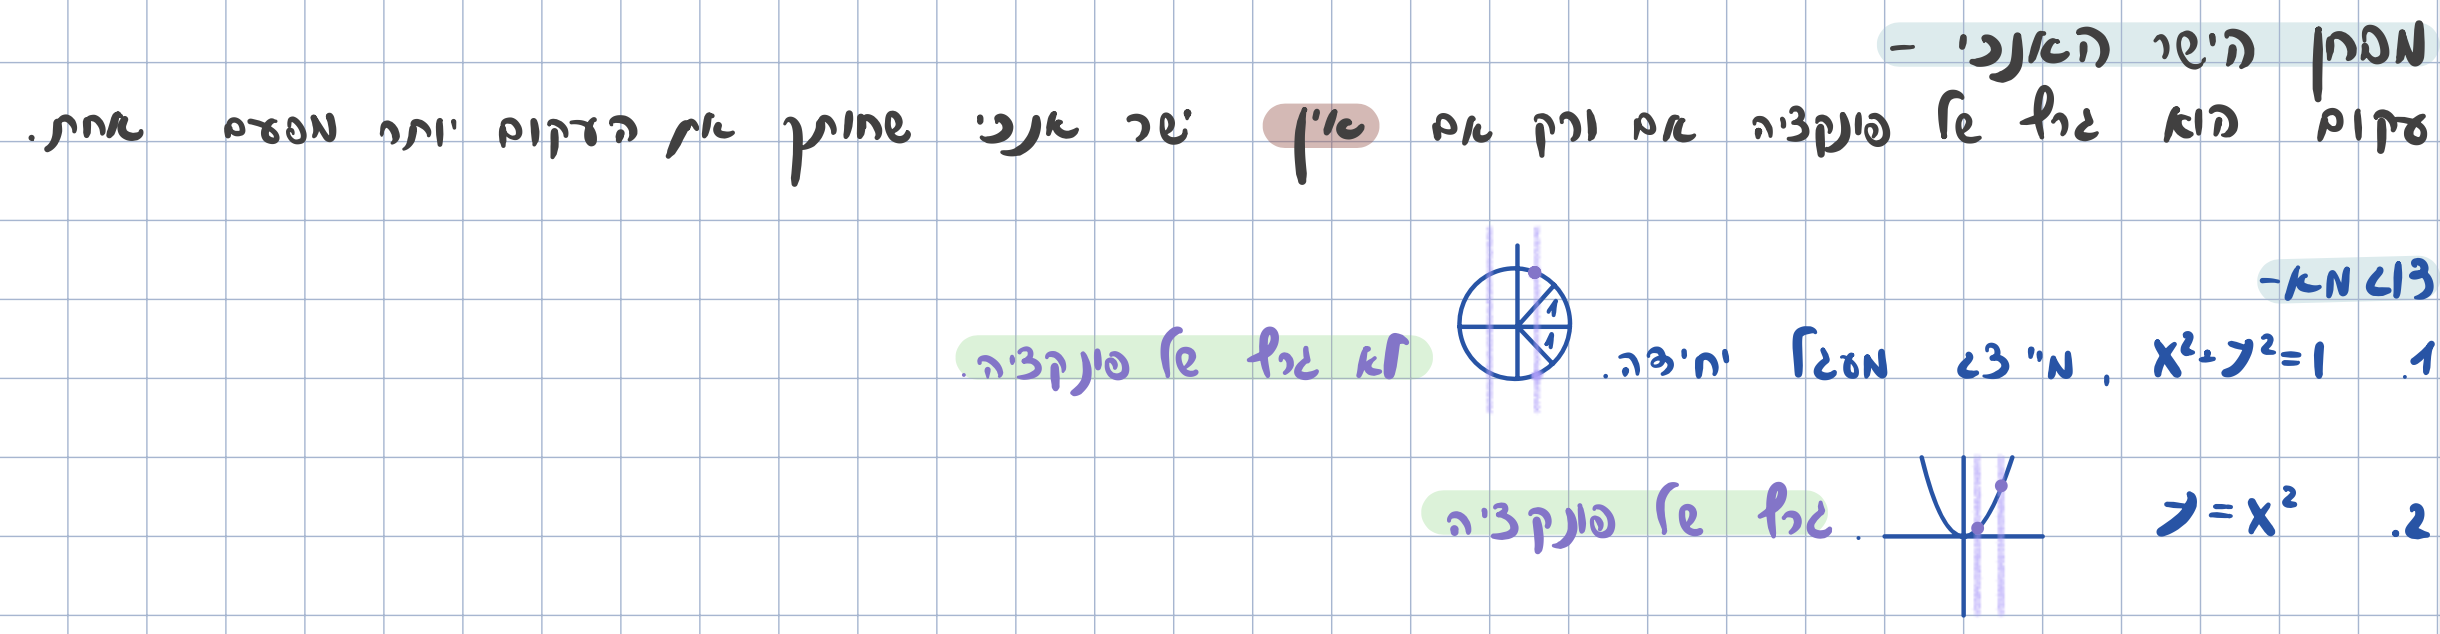 מבחן הישר האנכי -
עקום הוא גרף של פונקציה אם ורק אם אין ישר אנכי שחותך את העקום יותר מפעם אחת.
דוגמא-
1. x²+y²=1 , מייצג מעגל יחידה. 1 1 לא גרף של פונקציה.
2. y=x² . גרף של פונקציה